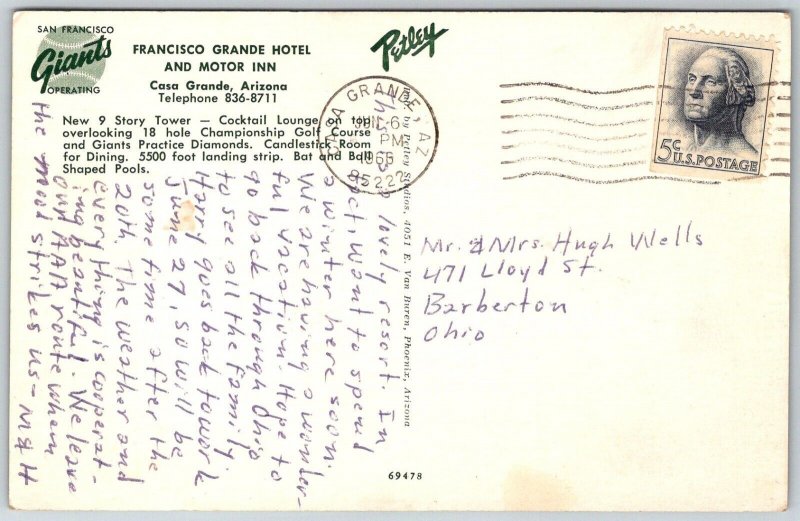 SAN FRANCISCO
Giants
OPERATING
FRANCISCO GRANDE HOTEL
AND MOTOR INN
Casa Grande, Arizona
Telephone 836-8711
New 9 Story Tower — Cocktail Lounge on top
overlooking 18 hole Championship Golf Course
and Giants Practice Diamonds. Candlestick Room
for Dining. 5500 foot landing strip. Bat and Ball
Shaped Pools.
Petley
CASA GRANDE, AZ
6
PM
1966
85222
5c U.S. POSTAGE
by Petley Studios, 4051 E. Van Buren, Phoenix, Arizona
This is a lovely resort. In
fact, want to spend
a winter here soon.
We are having a wonder-
ful vacation. Hope to
go back through Ohio
to see all the family.
Harry goes back to work
June 27, so will be
some time after the
20th. The weather and
everything is cooperat-
ing beautiful. We leave
our AAA route when
the mood strikes us — M & H
Mr. & Mrs. Hugh Wells
471 Lloyd St.
Barberton
Ohio
69478